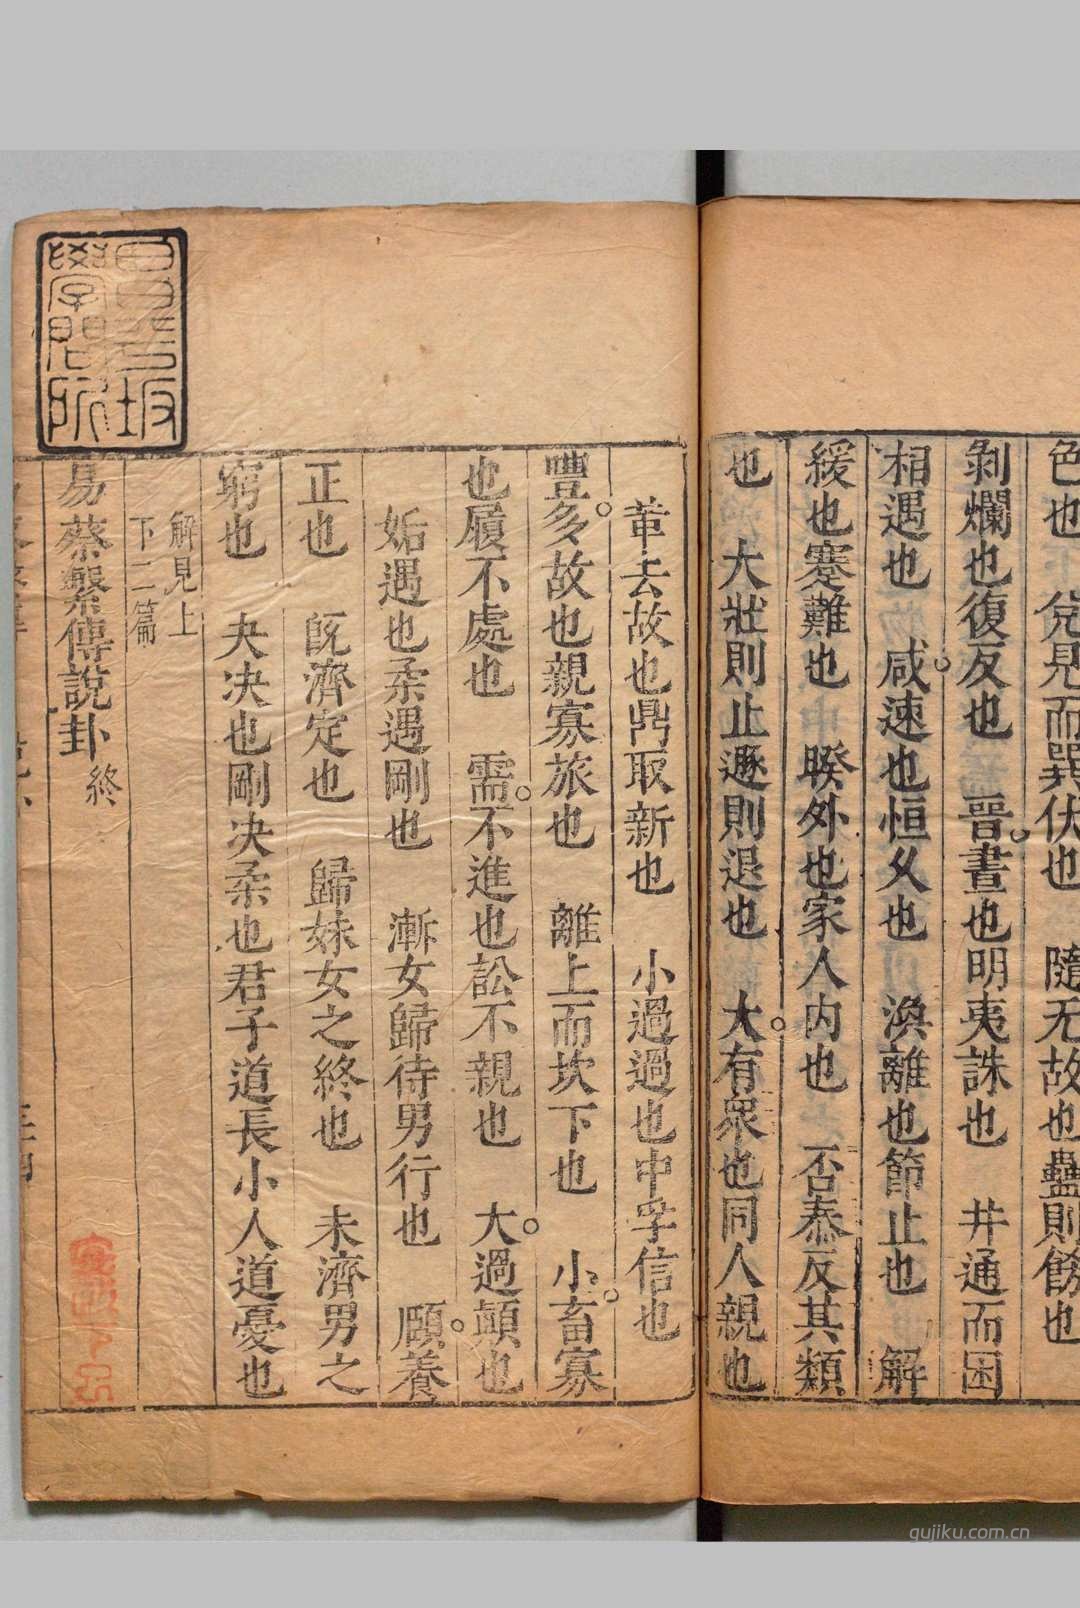 色也 兌見而巽伏也 隨无故也蠱則飭也
剝爛也復反也 晉晝也明夷誅也 井通而困
相遇也 咸速也恒久也 渙離也節止也 解
緩也蹇難也 睽外也家人内也 否泰反其類
也 大壯則止遯則退也 大有眾也同人親也
革去故也鼎取新也 小過過也中孚信也
豐多故也親寡旅也 離上而坎下也 小畜寡
也履不處也 需不進也訟不親也 大過顛也
姤遇也柔遇剛也 漸女歸待男行也 頤養
正也 旣濟定也 歸妹女之終也 未濟男之
窮也 夬决也剛决柔也君子道長小人道憂也
解見上
下二篇
易蔡繫傳說卦終
昌平坂
學問所
gujiku.com.cn